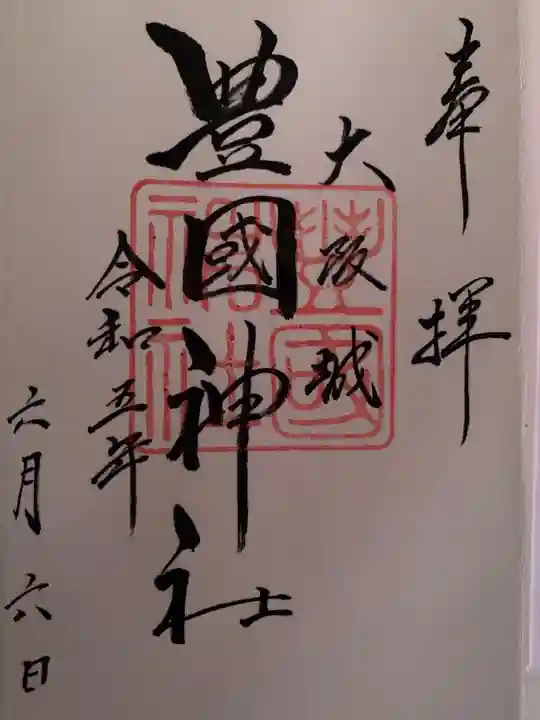 奉拝
大阪城
豊國神社
令和五年
六月六日
豊國
神社